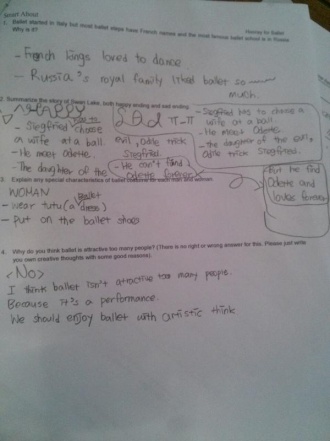 Smart About
Hooray for Ballet
1. Ballet started in Italy but most ballet steps have French names and the most famous ballet school is in Russia.
Why is it?
- French kings loved to dance
- Russia's royal family liked ballet so much.
2. Summarize the story of Swan Lake, both happy ending and sad ending
HAPPY
- Siegfried has to choose
a wife at a ball.
- He meet Odette.
- The daughter of the
evil, odile trick
Siegfried.
Sad ㅠ-ㅠ
- He can't find
Odette forever
- Siegfried has to choose a
wife at a ball.
- He meet Odette.
- the daughter of the evil,
odile trick Siegfried.
- But he find
Odette and
loves forever
3. Explain any special characteristics of ballet costume for each man and woman.
WOMAN
- wear tutu(a ballet dress)
- put on the ballet shoes
4. Why do you think ballet is attractive too many people? (There is no right or wrong answer for this. Please just write
you own creative thoughts with some good reasons).
<No>
I think ballet isn't attractive too many people.
Because it's a performance.
We should enjoy ballet with artistic think